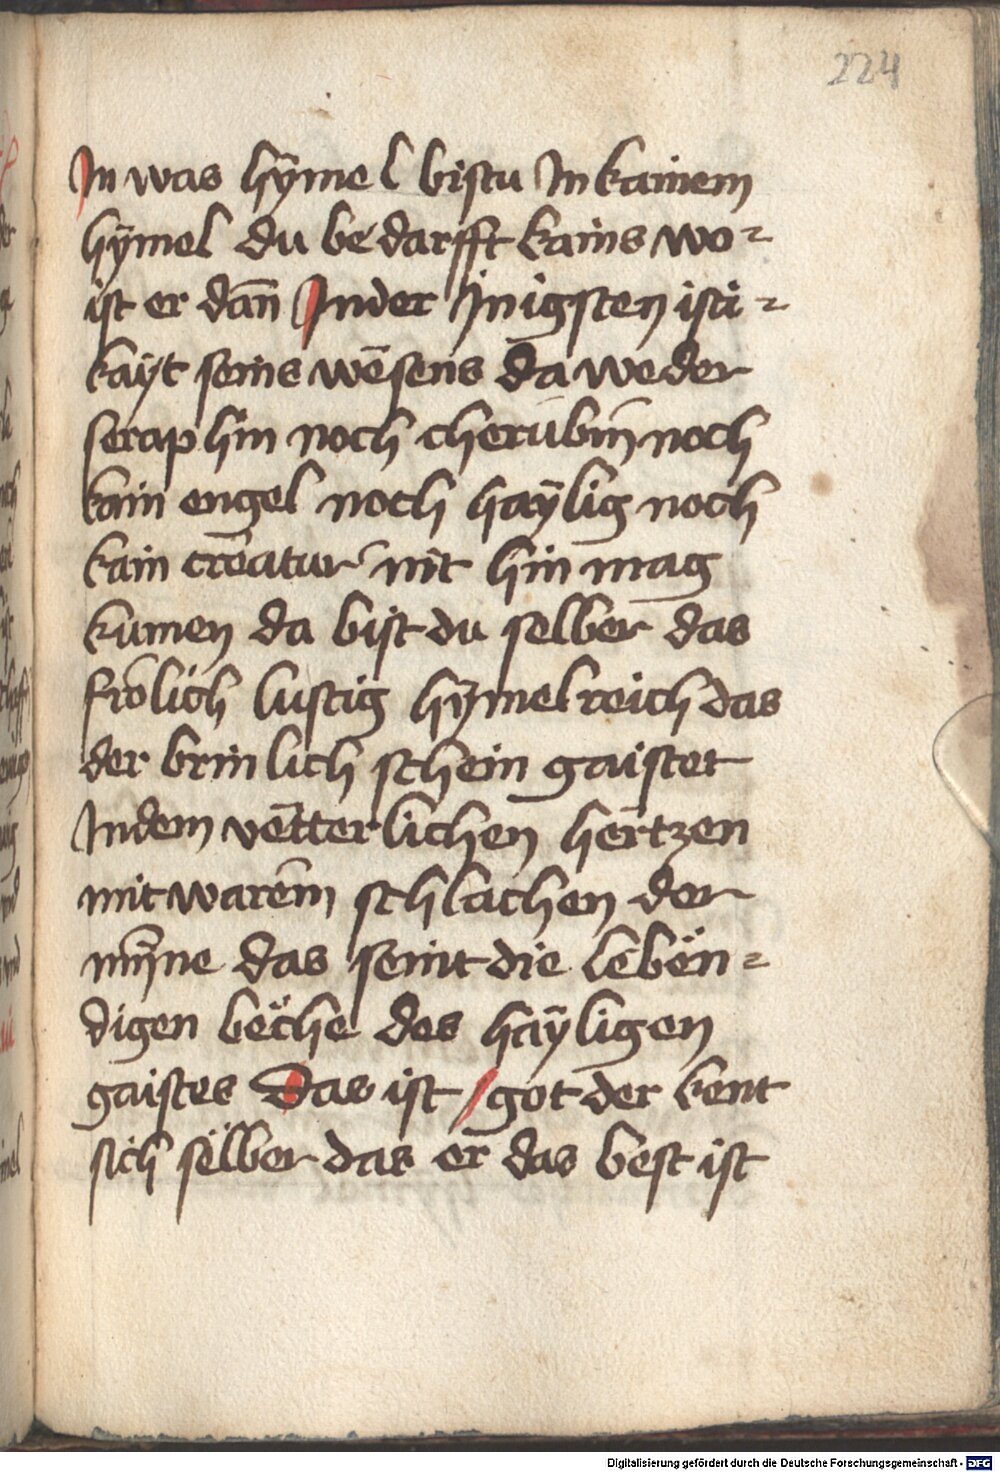 224
In was hÿmel bistu In kainem
hÿmel du bedarfft kains wo⸗
ist er dan̄ Inder Inigsten isti⸗
kaÿt seins wēsens da weder
seraphin noch cherubin̄ noch
kain engel noch haÿlig noch
kain crēatur nit hin mag
kumen da bist du selber das
frölich lustig hÿmelreich das
der brinlich schein gaistet
Indem vētterlichen hertzen
mit warēm schlachen der
mÿne das seint die lebën⸗
digen bëche des haÿligen
gaistes Das ist / got der kent
sich sëlber das er das best ist
Digitalisierung gefördert durch die Deutsche Forschungsgemeinschaft - DFG